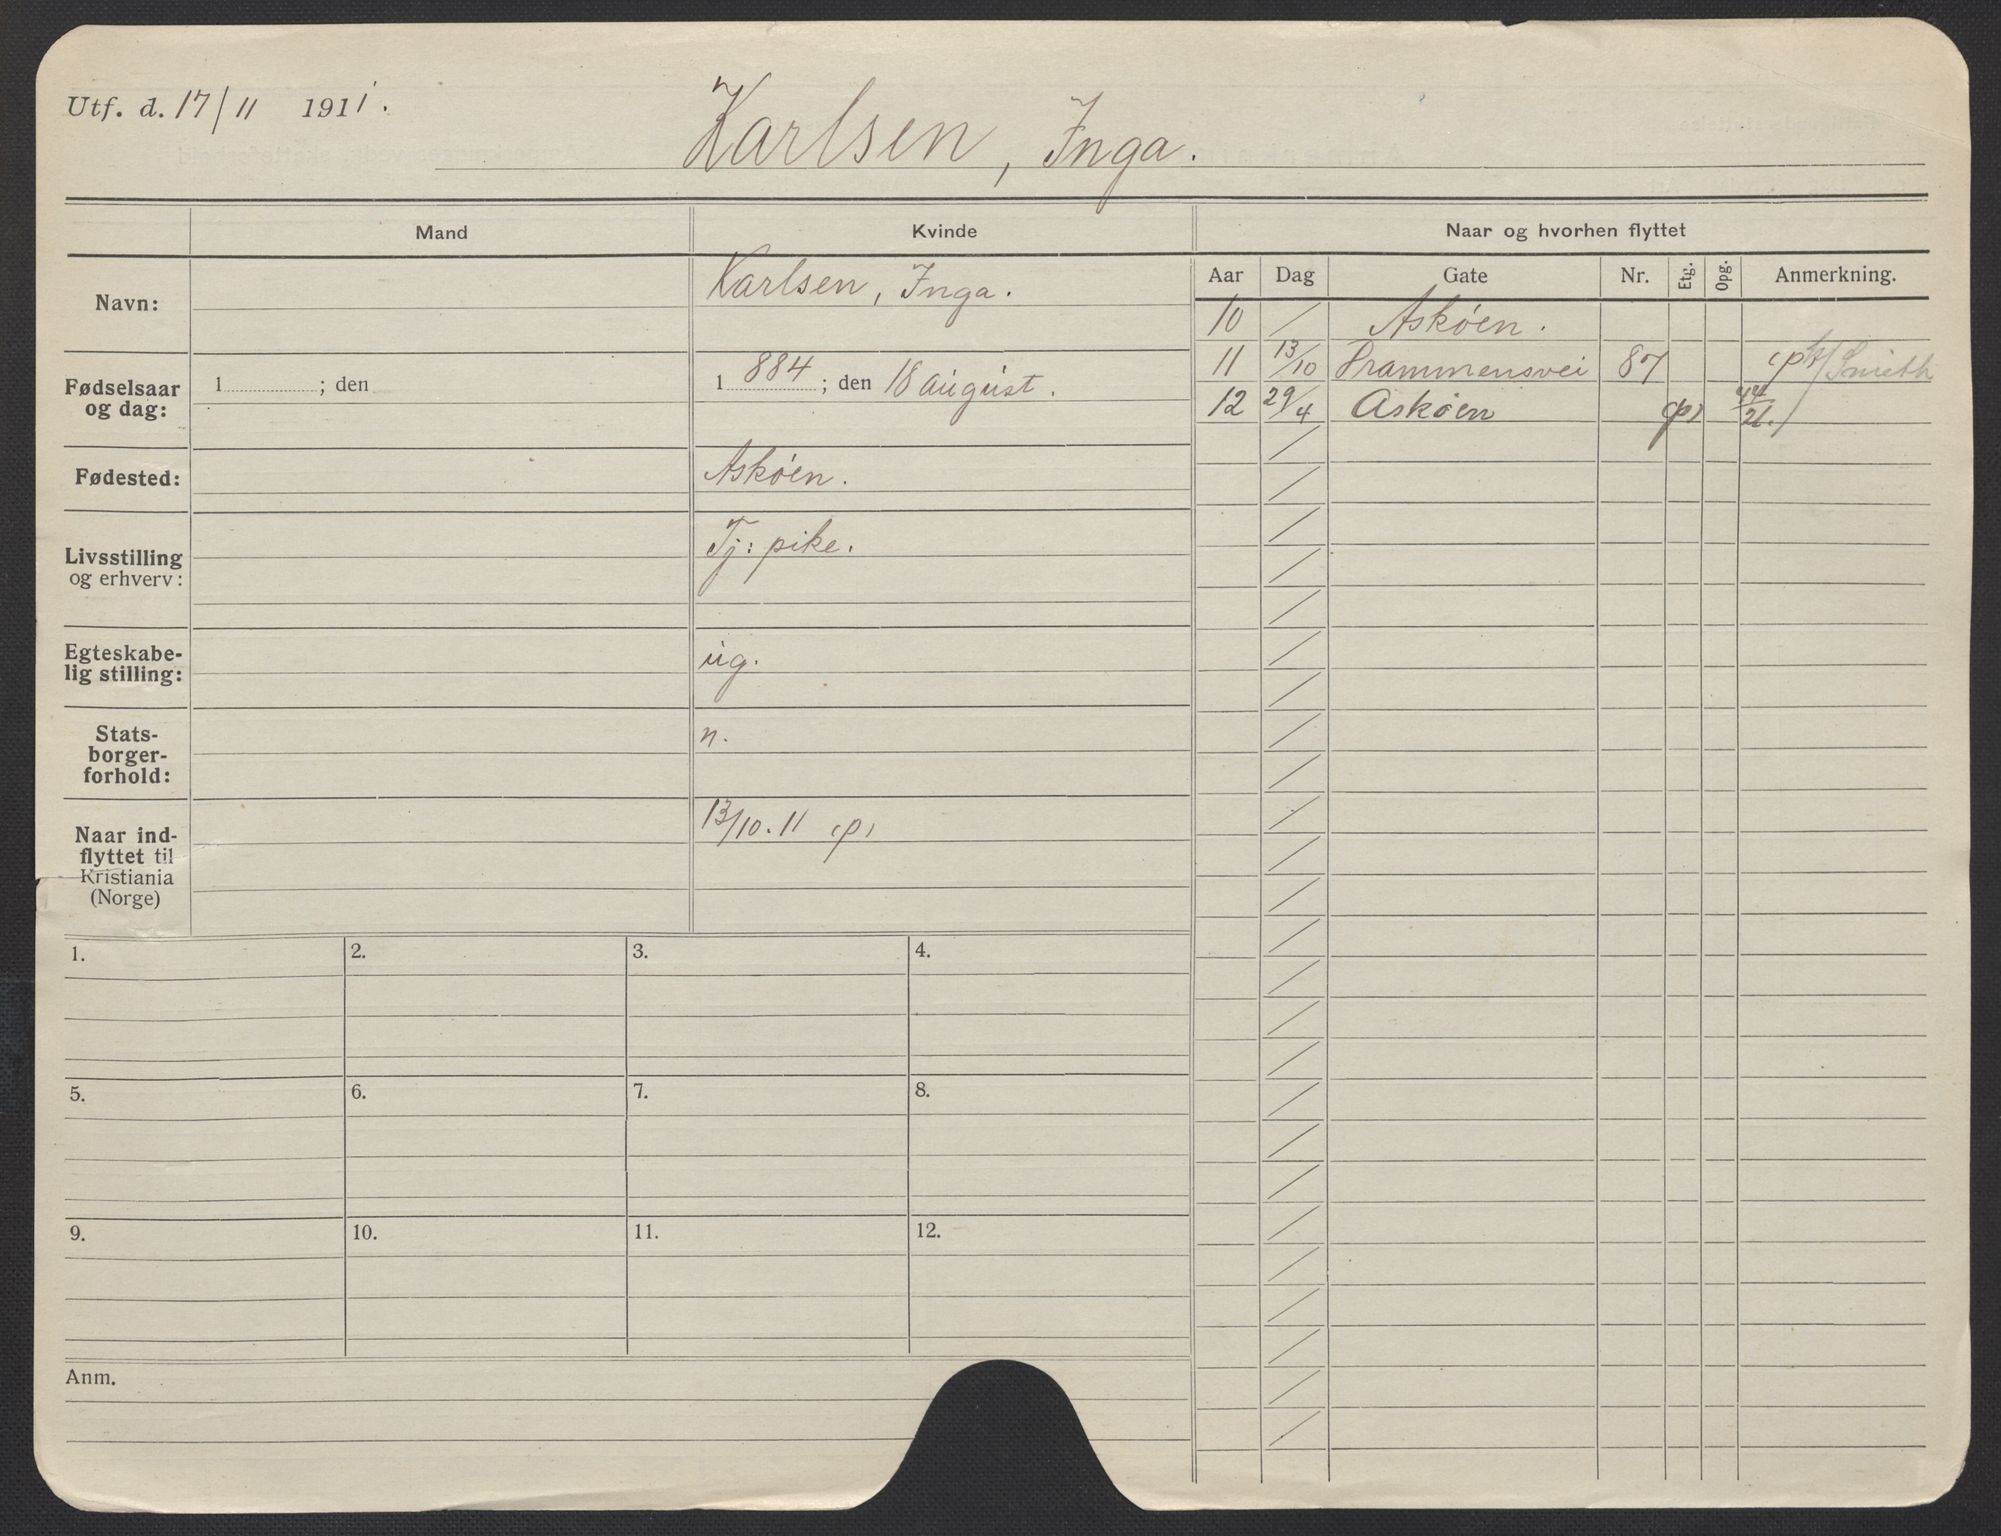 Utf. d. 17/11 1911.
Karlsen, Inga.
Mand Kvinde Naar og hvorhen flyttet
Aar Dag Gate Nr. Etg. Opg. Anmerkning.
Navn: Karlsen, Inga.
Fødselsaar og dag: 1 ; den 1 884 ; den 18 august.
Fødested: Askøen.
Livsstilling og erhverv: Tj: pike.
Egteskabe-
lig stilling: ug.
Stats-
borger-
forhold: n.
Naar ind-
flyttet til
Kristiania
(Norge) 13/10. 11 (p)
10 / Askøen.
11 13/10 Drammensvei 87 (p) h/ Smith
12 29/4 Askøen (p)
1. 2. 3. 4.
5. 6. 7. 8.
9. 10. 11. 12.
Anm.